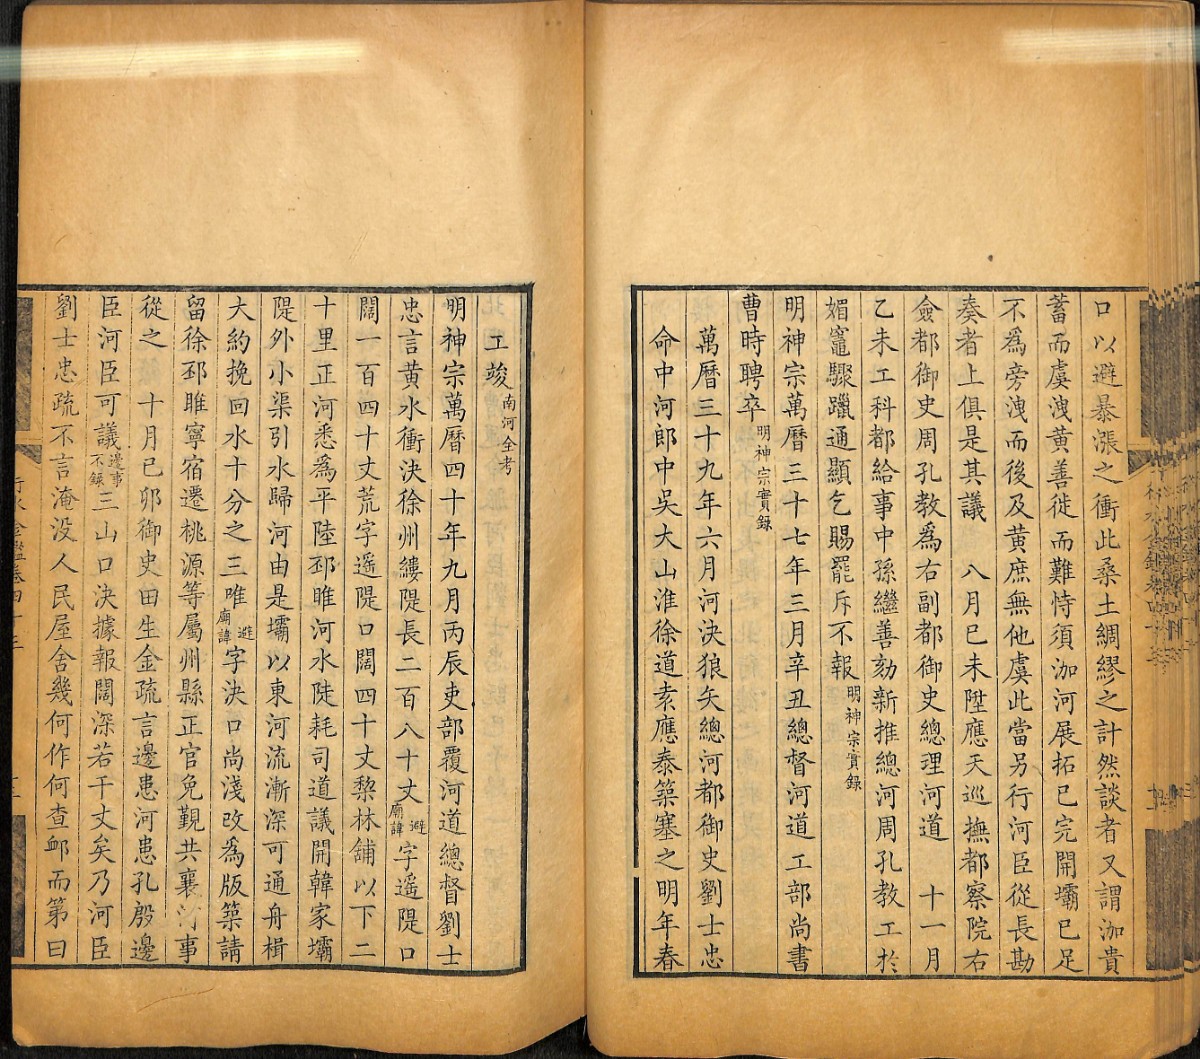 口以避暴漲之衝此桑土綢繆之計然談者又謂泇貴
蓄而虞洩黃善徙而難恃須泇河展拓已完開壩已足
不爲旁洩而後及黃庶無他虞此當另行河臣從長勘
奏者上俱是其議 八月己未陞應天巡撫都察院右
僉都御史周孔教爲右副都御史總理河道 十一月
乙未工科都給事中孫繼善劾新推總河周孔教工於
媚竈驟躐通顯乞賜罷斥不報明神宗實録
明神宗萬曆三十七年三月辛丑總督河道工部尚書
曹時聘卒明神宗實録
萬曆三十九年六月河決狼矢總河都御史劉士忠
命中河郎中吳大山淮徐道袁應泰築塞之明年春
北工竣南河全考
明神宗萬曆四十年九月丙辰吏部覆河道總督劉士
忠言黃水衝決徐州縷隄長二百八十丈避廟諱字遥隄口
闊一百四十丈荒字遥隄口闊四十丈棃林舖以下二
十里正河悉爲平陸邳睢河水陡耗司道議開韓家壩
隄外小渠引水歸河由是壩以東河流漸深可通舟楫
大約挽回水十分之三唯避廟諱字決口尚淺改爲版築請
留徐邳睢寧宿遷桃源等屬州縣正官免覲共襄河事
從之 十月己卯御史田生金疏言邊患河患孔殷邊
臣河臣可議邊事不錄三山口決據報闊深若干丈矣乃河臣
劉士忠疏不言淹没人民屋舍幾何作何查卹而第曰